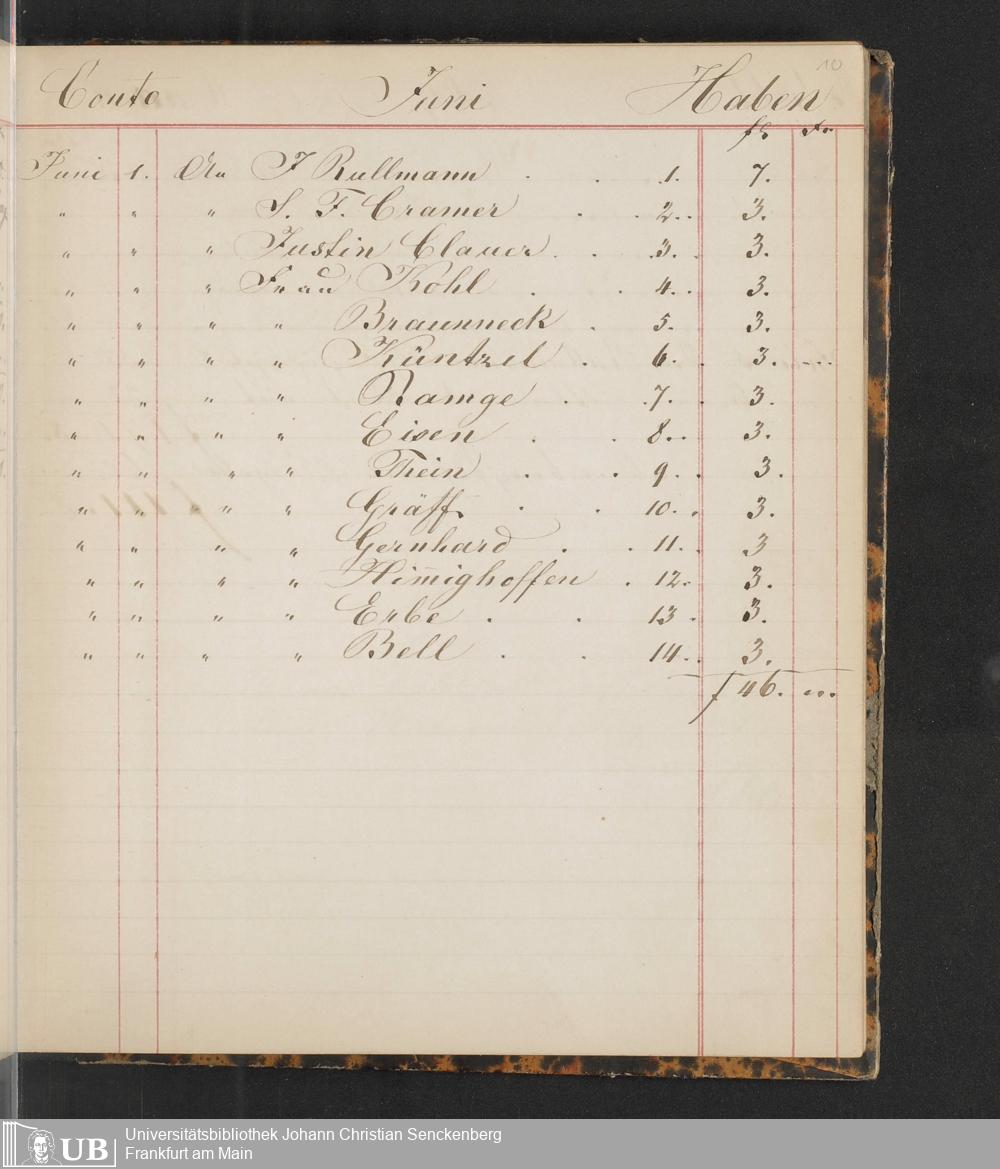 10
Conto Juni Haben
fl xr
Juni 1. An J Rullmann . . 1. 7.
" " " S. F. Cramer . . 2. . 3.
" " " Justin Clauer . . 3. . 3.
" " " Frau Kohl . . 4. . 3.
" " " " Braunneck . 5. 3.
" " " " Küntzel . 6. . 3. ...
" " " " Ramge . .7. . 3.
" " " " Eisen . . 8. . 3.
" " " " Thein . . 9. . 3.
" " " " Gräff . . 10. . 3.
" " " " Gernhard . . 11. . 3
" " " " Him̅ighoffen . 12. 3.
" " " " Erbe . . 13 . 3.
" " " " Bell . . 14. . 3.
f 46. ...
UB
Universitätsbibliothek Johann Christian Senckenberg
Frankfurt am Main